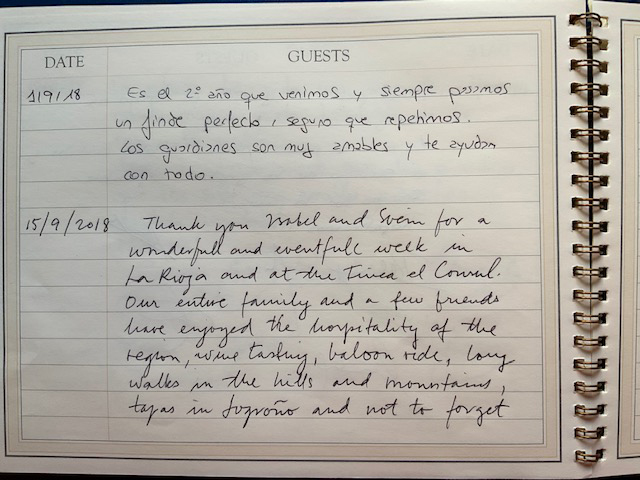 DATE GUESTS
1/9/18 Es el 2º año que venimos y siempre pasamos
un finde perfecto, seguro que repetimos.
Los guardianes son muy amables y te ayudan
con todo.
15/9/2018 Thank you Isabel and Svein for a
wonderfull and eventfull week in
La Rioja and at the Finca el Consul.
Our entire family and a few friends
have enjoyed the hospitality of the
region, wine tasting, baloon ride, long
walks in the hills and mountains,
tapas in Logroño and not to forget